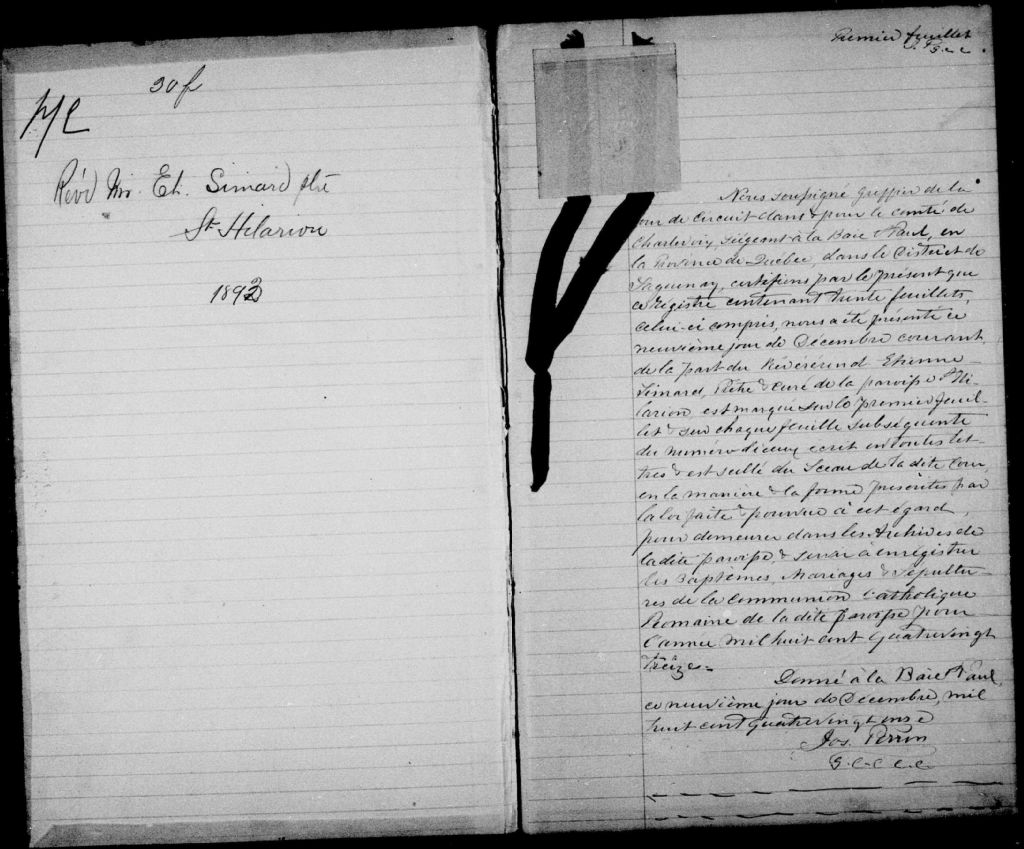 30 f
Révd Mr. Et. Simard ptre
St Hilarion
1893
Premier feuillet
J. P.
G. c. c.
Nous soussigné Greffier de la
Cour de Circuit dans & pour le comté de
Charlevoix, siégeant à la Baie St Paul, en
la Province de Québec, dans le District de
Saguenay, certifions par le présent que
ce Régistre contenant trente feuillets,
celui-ci compris, nous a été présenté ce
neuvième jour de Décembre courant
de la part du Révérérend Etienne
Simard, Prêtre & curé de la paroisse St Hi-
larion, est marqué sur le premier feuil-
let & sur chaque feuille subséquente
du numéro d'iceux écrit en toutes let-
tres & est scellé du Sceau de la dite Cour
en la manière & la forme préscrites par
la loi faite & pourvue à cet égard,
pour demeurer dans les Archives de
la dite paroisse, & servir à enrégistrer
les Baptêmes, Mariages & Sépultu-
res de la Communion Catholique
Romaine de la dite paroisse pour
l'année mil huit cent quatrevingt
treize.
Donné à la Baie St Paul,
ce neuvième jour de Décembre, mil
huit cent quatrevingt
Jos. Perron
G. c. c. c. c.